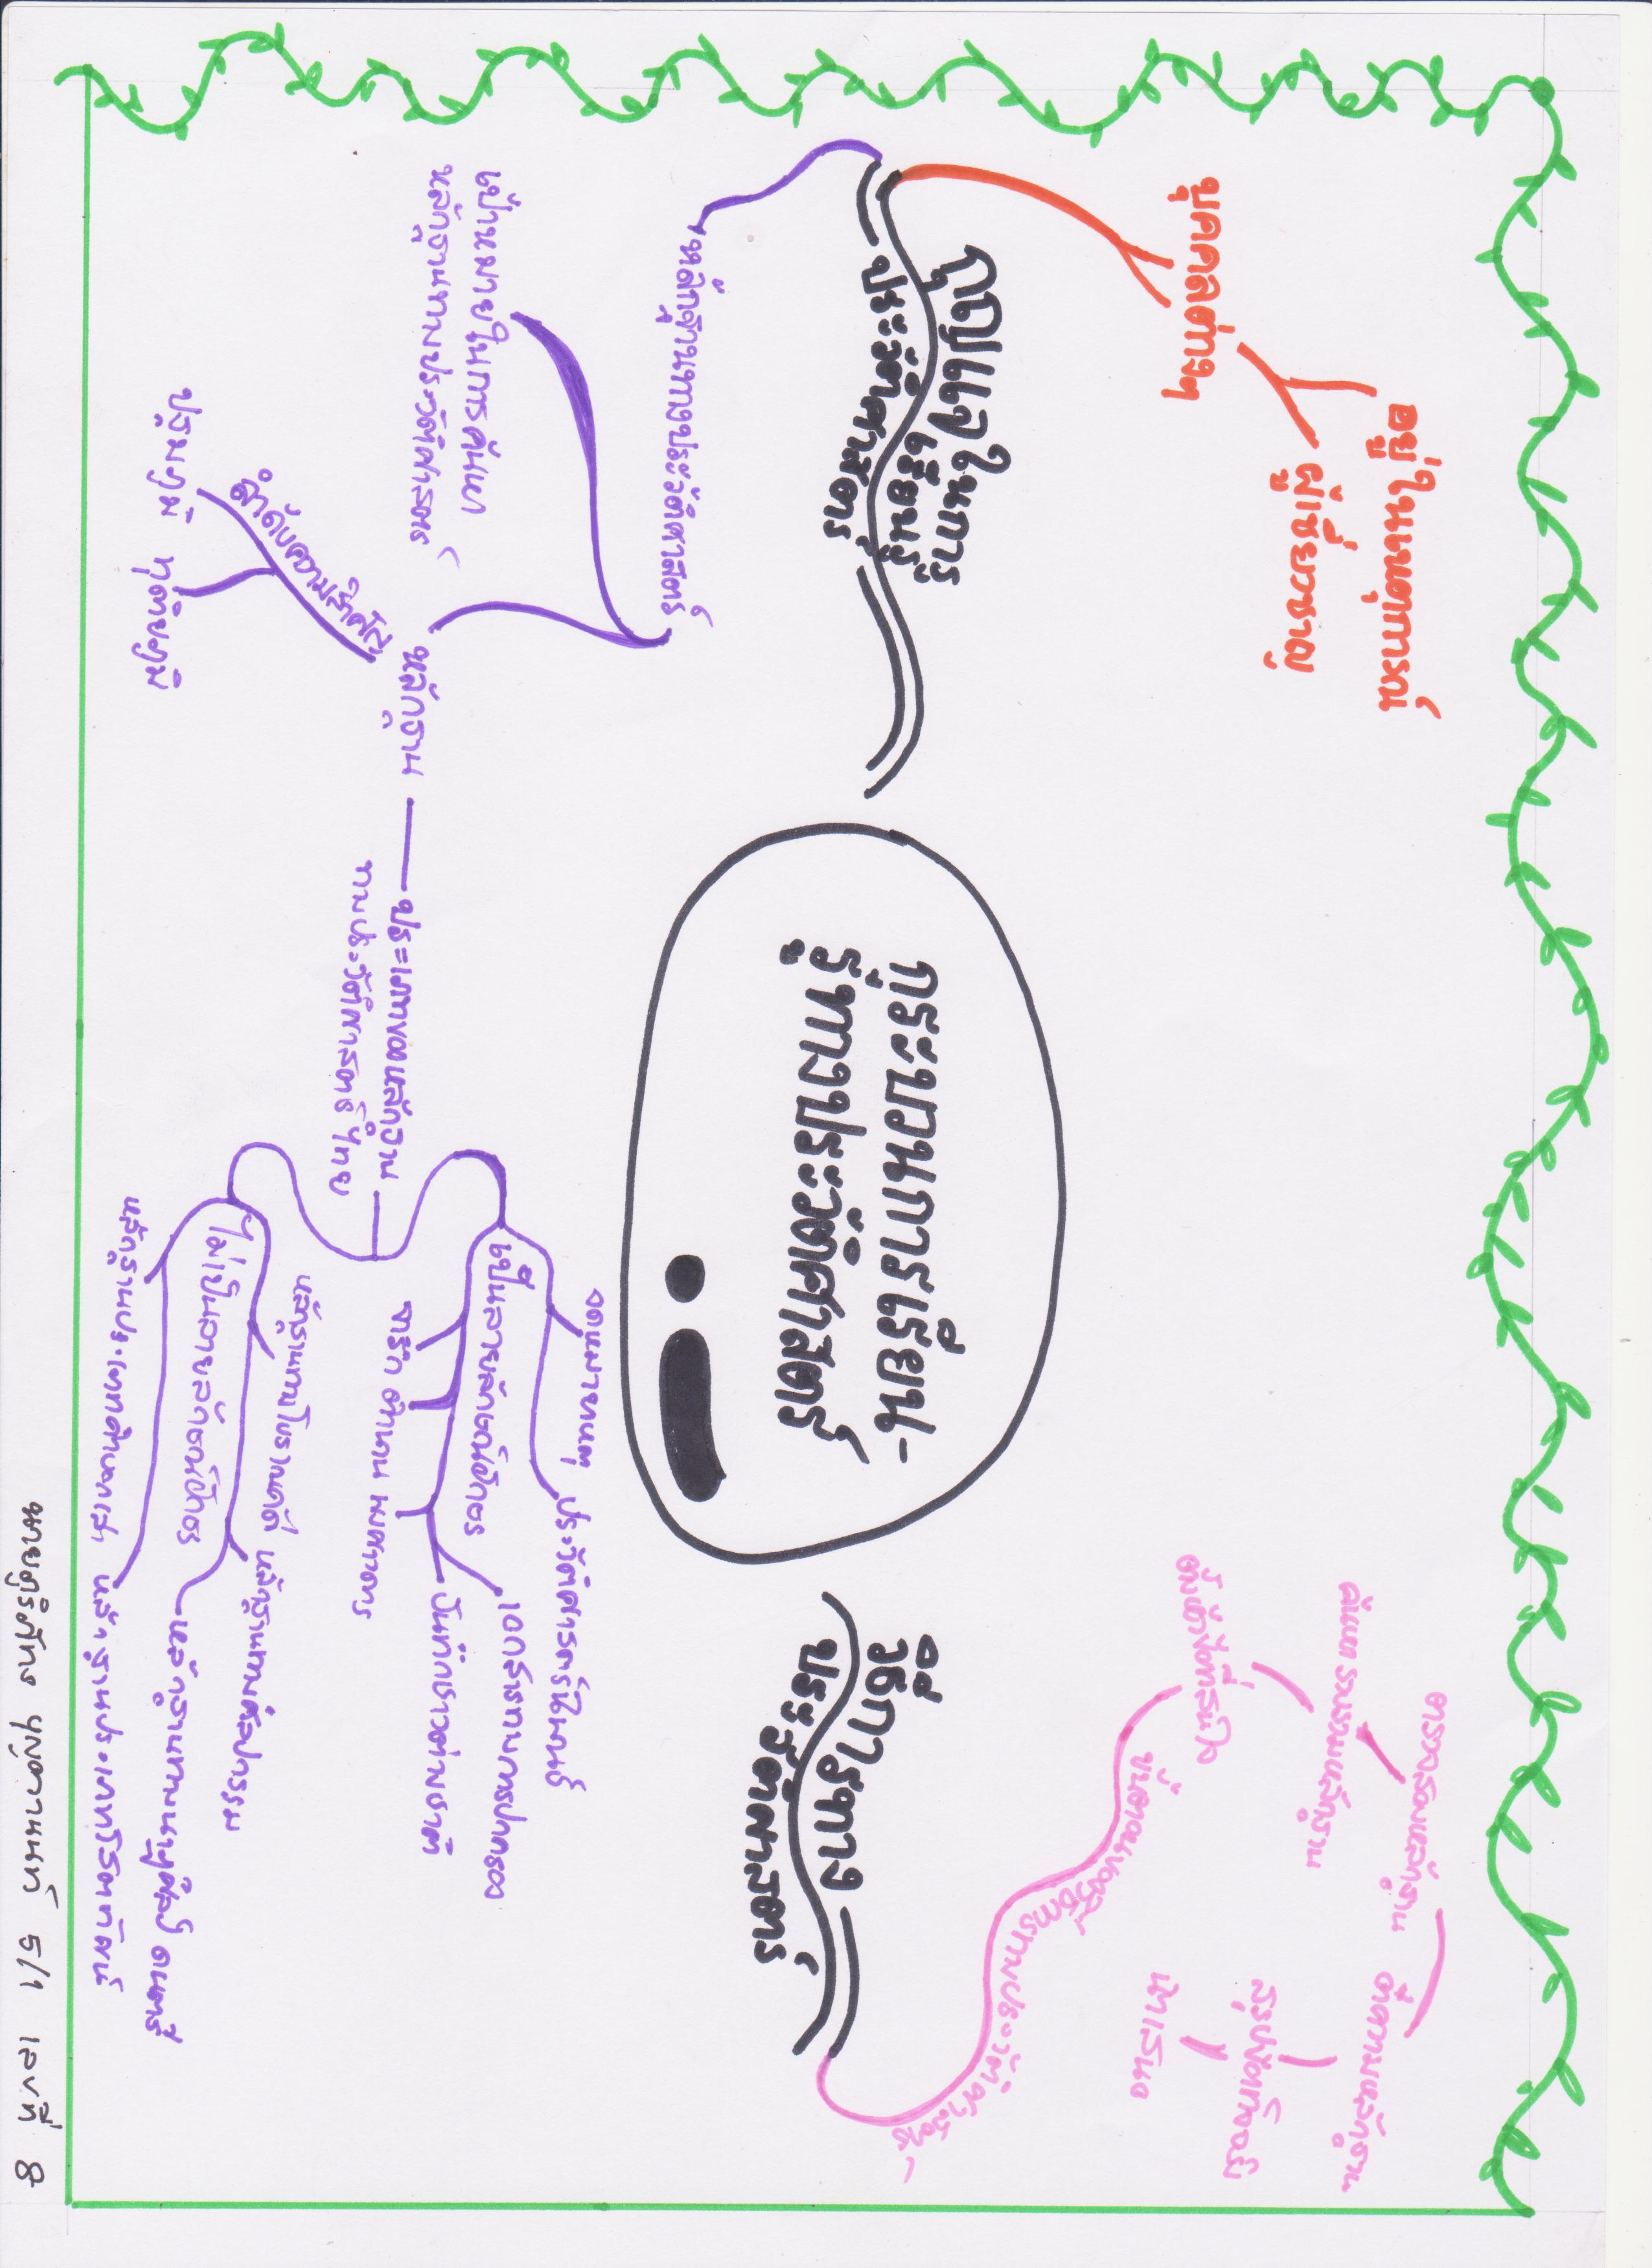 กระบวนการเรียน-
รู้ทางประวัติศาสตร์
กุญแจในการ
เรียนรู้
ประวัติศาสตร์
บุคคลต่างๆ
อยู่ในเหตุการณ์
ผู้เชี่ยวชาญ
หลักฐานทางประวัติศาสตร์
เป้าหมายในการค้นหา
หลักฐานทางประวัติศาสตร์
หลักฐาน
ลำดับความสำคัญ
ปฐมภูมิ
ทุติยภูมิ
ประเภทของหลักฐาน
ทางประวัติศาสตร์ไทย
เป็นลายลักษณ์อักษร
จดหมายเหตุ
ประวัติศาสตร์นิพนธ์
เอกสารทางการปกครอง
บันทึกชาวต่างชาติ
จารึก ตำนาน พงศาวดาร
ไม่เป็นลายลักษณ์อักษร
หลักฐานทางโบราณคดี
หลักฐานทางศิลปกรรม
หลักฐานทางนาฏศิลป์ ดนตรี
หลักฐานประเภทโสตทัศน์
วิธีการทาง
ประวัติศาสตร์
ขั้นตอนของวิธีการทางประวัติศาสตร์
ตั้งหัวข้อที่สนใจ
ค้นหารวบรวมหลักฐาน
ตรวจสอบหลักฐาน
ตีความหลักฐาน
นำเสนอ
5/1 เลขที่ 8